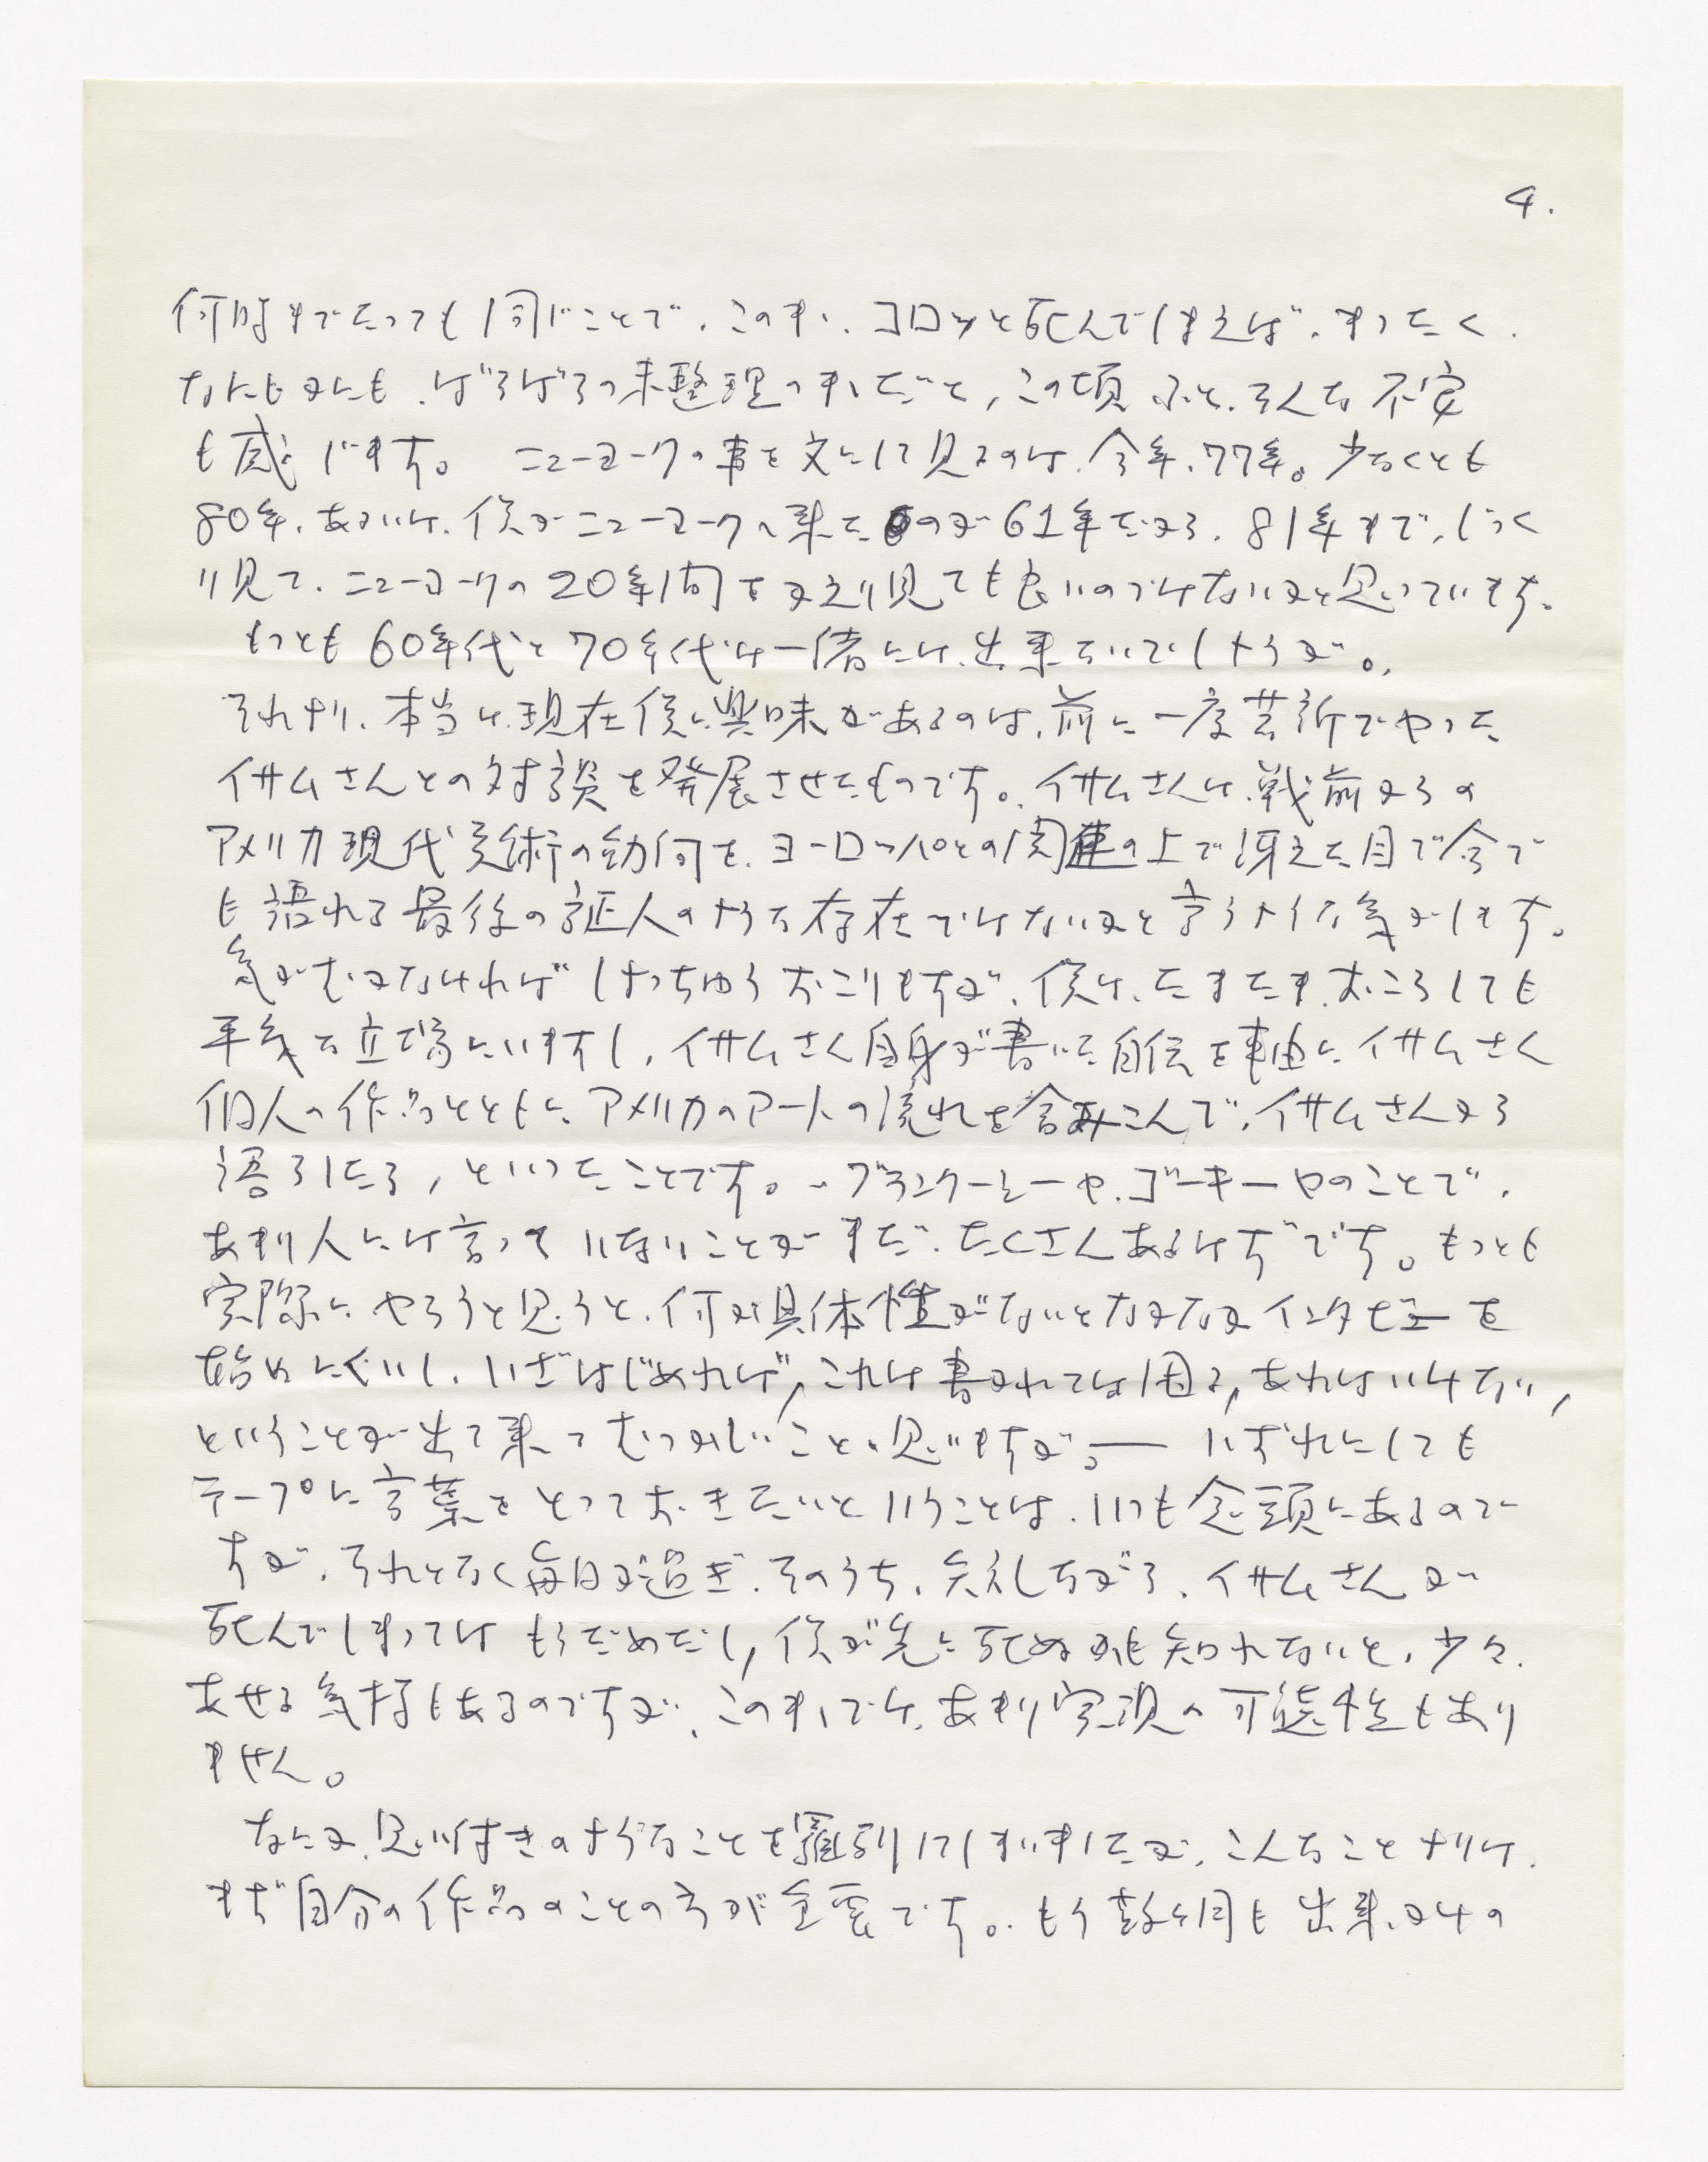 4.
何時までたっても同じことで、このまゝ、コロッと死んでしまえば、まったく、
なにもかにも、ばらばらの未整理のまゝだと、この頃ふと、そんな不安
も感じます。 ニューヨークの事を文にして見るのは、今年、77年。少なくとも
80年、あるいは、僕がニューヨークへ来たのが61年だから、81年まで、じっく
り見て、ニューヨークの20年間をかえり見ても良いのではないかと思っています。
もっとも60年代と70年代は一緒には、出来ないでしょうが。
それより、本当は、現在僕に興味があるのは、前に一度芸新でやった
イサムさんとの対談を発展させたものです。イサムさんは、戦前からの
アメリカ現代美術の動向を、ヨーロッパとの関連の上で冴えた目で今で
も語れる最後の証人のような存在ではないかと言うような気がします。
気がむかなければしょっちゅうおこりますが、僕は、たまたま、おこらしても
平気な立場にいますし、イサムさん自身が書いた自伝を軸に、イサムさん
個人の作品とともに、アメリカのアートの流れを含みこんで、イサムさんから
語らしたら、といったことです。ブランクーシーや、ゴーキーやのことで、
あまり人には言っていないことがまだ、たくさんあるはずです。もっとも
実際にやろうと思うと、何か具体性がないとなかなかインタビューを
始めにくいし、いざはじめれば、これは書かれては困る、あれはいけない、
ということが出て来てむつかしいことゝ思いますが。— いずれにしても
テープに言葉をとっておきたいということは、いつも念頭にあるので
すが、それとなく毎日が過ぎ、そのうち、失礼ながら、イサムさんが
死んでしまってはもうだめだし、僕が先に死ぬかも知れないと、少々、
あせる気持もあるのですが、このまゝでは、あまり実現の可能性もあり
ません。
なにか、思い付きのようなことを羅列してしまいましたが、こんなことよりは、
まず自分の作品のことの方が重要です。もう数ヶ月も出来、かけの